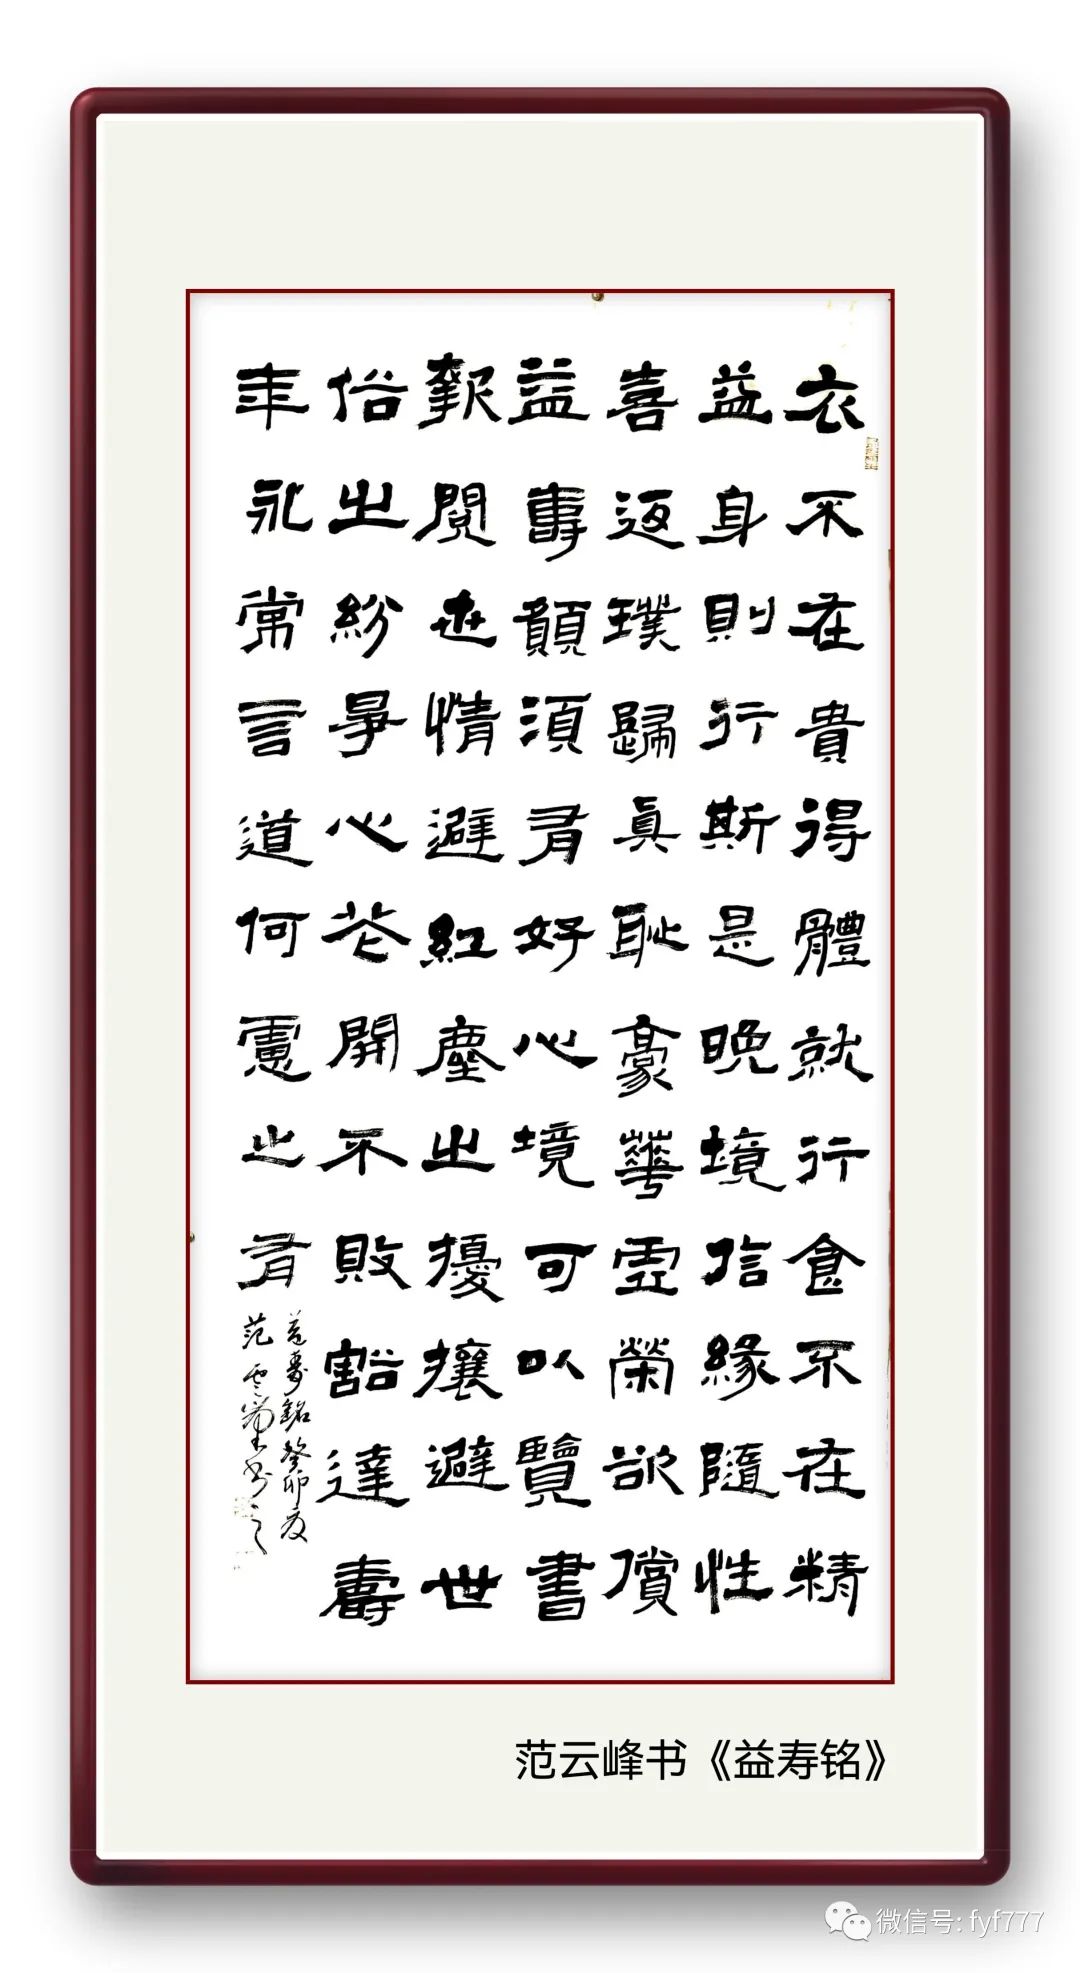 衣不在貴得體就行食不在精
益身則行斯是晚境信緣隨性
喜返璞歸眞恥豪華虛榮欲償
益壽願須有好心境可以覽書
報閱世情避紅塵之擾攘避世
俗之紛爭心花開不敗豁達壽
年永常言道何憂之有
益壽銘癸卯夏
范雲峯书之
范云峰书《益寿铭》
微信号: fyf777